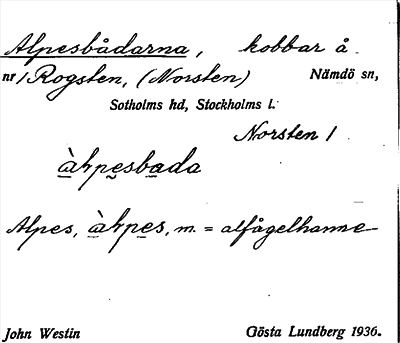 Alpesbådarna, kobbar å
nr 1 Rogsten, (Norsten) Nämdö sn,
Sotholms hd, Stockholms l.
Norsten 1
àḷpesbada
Alpes, àḷpes, m. = alfågelhanne
John Westin Gösta Lundberg 1936.